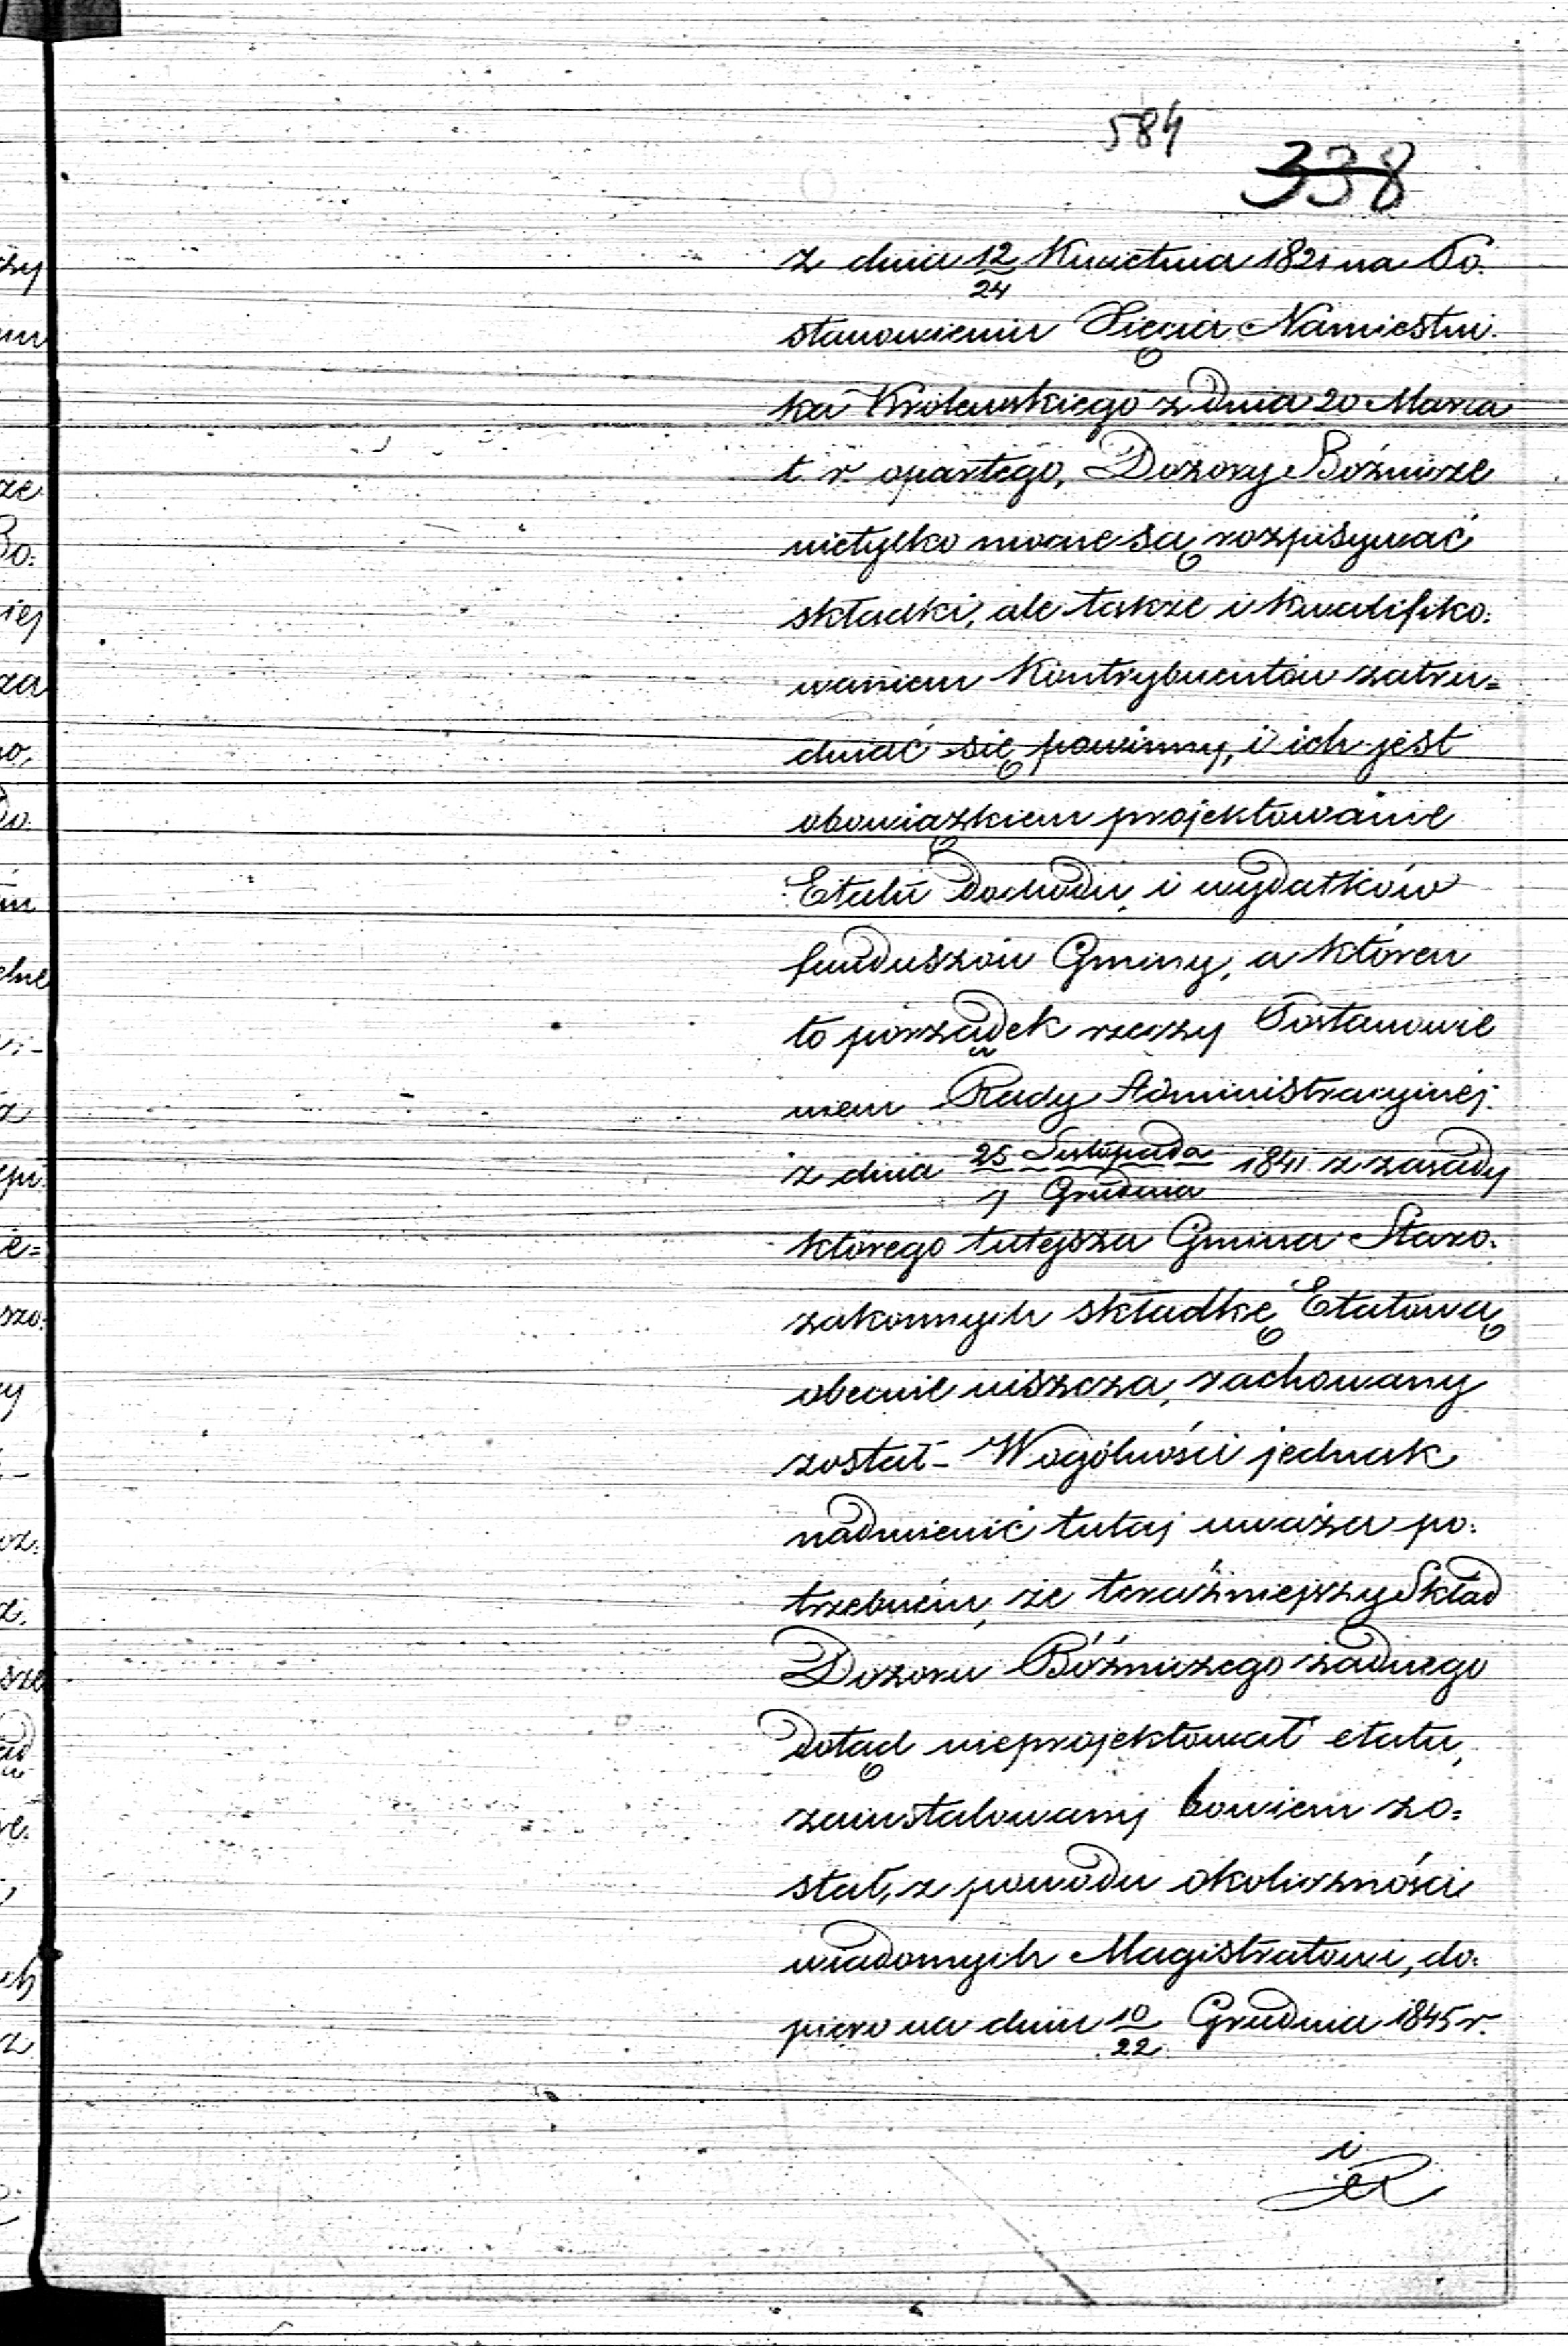 584
338
z dnia 12/24 Kwietnia 1821 na Po.
stanowieniu Xięcia Namiestni.
ka Królewskiego z dnia 20 Marca
t. r. opartego, Dozory Bóźnicze
nietylko mocne są rozpisywać
składki, ale także i kwalifiko:
waniem Kontrybuentów zatru=
dniać się powinny, i ich jest
obowiązkiem projektowanie
Etatu dochodu, i wydatków
funduszów Gminy, a któren
to porządek rzeczy Postanowie
niem Rady Administracyjnéj.
z dnia 25 Listopada/7 Grudnia 1841 z zasady
którego tutejsza Gmina Staro.
zakonnych składkę Etatową
obecnie uiszcza, zachowany
został - Wogólności jednak
nadmienić tutaj uważa po:
trzebném, że teraźniejszy Skład
Dozoru Bóźniczego żadnego
dotąd nieprojektował etatu,
zainstalowany bowiem zo=
stał, z powodu okoliczności
wiadomych Magistratowi, do:
piero na dniu 10/22 Grudnia 1845 r.
i